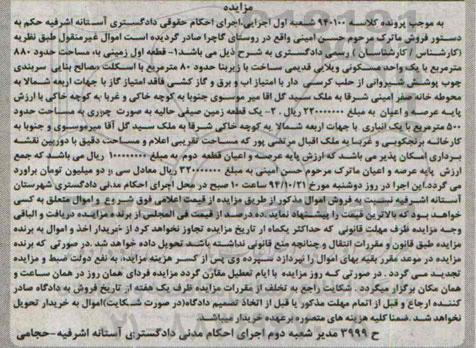 مزایده
به موجب پرونده کلاسه ۹۴۰۱۰۰ شعبه اول اجرایی اجرای احکام حقوقی دادگستری آستانه اشرفیه حکم به
دستور فروش ماترک مرحوم حسن امینی واقع در روستای گاچرا صادر گردیده است اموال غیرمنقول طبق نظریه
(کارشناس / کارشناسان ) رسمی دادگستری به شرح ذیل می باشد:۱- قطعه اول زمینی به مساحت حدود ۸۸۰
مترمربع با یک واحد مسکونی ویلایی قدیمی ساخت با زیربنا حدود ۸۰ مترمربع با اسکلت مصالح بنایی سربندی
چوب پوشش شیروانی از حلب کرسی دار با امتیاز آب و برق و گاز کشی فاقد امتیاز گاز با جهات اربعه شمالا به
محوطه خانه صفر امینی شرقا به ملک سید گل آقا میر موسوی جنوبا به کوچه خاکی و غربا به کوچه خاکی با ارزش
پایه عرصه و اعیان به مبلغ ۲۲۰۰۰۰۰۰۰ ریال. ۲- یک قطعه زمین صیفی حالیه به صورت چپری به مساحت حدود
۵۰۰ مترمربع با یک انباری با جهات اربعه شمالا به کوچه خاکی شرقا به ملک سید گل آقا میرموسوی و جنوبا به
کارخانه برنجکوبی و غربا به ملک اقبال مرتضی پور که مساحت تقریبی اعلام و مساحت دقیق با دوربین نقشه
برداری امکان پذیر می باشد که ارزش پایه عرصه و اعیان قطعه دوم به مبلغ ۱۰۰۰۰۰۰۰۰ ریال می باشد که جمع
ارزش پایه عرصه و اعیان ماترک مرحوم حسن امینی به مبلغ ۳۲۰۰۰۰۰۰۰ ریال معادل سی و دو میلیون تومان برآورد
می گردد.این اجرا در روز دوشنبه مورخ ۹۴/۱۰/۲۱ ساعت ۱۰ صبح در محل اجرای احکام مدنی دادگستری شهرستان
آستانه اشرفیه نسبت به فروش اموال مذکور از طریق مزایده از قیمت اعلامی فوق شروع و اموال متعلق به کسی
خواهد بود که بالاترین قیمت را پیشنهاد نماید .ده درصد از قیمت فی المجلس از برنده مزایده دریافت و الباقی
وجه مزایده ظرف مهلت قانونی که حداکثر یکماه از تاریخ مزایده تجاوز نخواهد کرد از خریدار اخذ و اموال به برنده
مزایده طبق قانون و مقررات انتقال و چنانچه منع قانونی نداشته باشد تحویل داده خواهد شد .در صورتی که برنده
مزایده در موعد مقرر بقیه بهای اموال را نپردازد سپرده وی پس از کسر هزینه مزایده، به نفع دولت ضبط و مزایده
تجدید می گردد . در صورتی که روز مزایده با ایام تعطیل مقارن گردد مزایده فردای همان روز در همان ساعت و
همان مکان برگزار میگردد . شکایت راجع به تخلف از مقررات مزایده ظرف یک هفته از تاریخ فروش به دادگاه صادر
کننده ارجاع و قبل از اتمام مهلت مذکور یا قبل از اتخاذ تصمیم دادگاه(در صورت شکایت)اموال به خریدار تحویل
نخواهد شد .ضمنا کلیه هزینه های متصوره برعهده خریدار میباشد.
ح ۳۹۹۹ مدیر شعبه دوم اجرای احکام مدنی دادگستری آستانه اشرفیه-حجامی